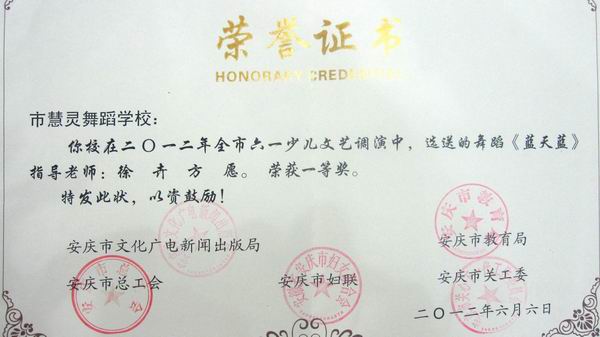 荣誉证书
HONORARY CREDENTIAL
市慧灵舞蹈学校：
你校在二〇一二年全市六一少儿文艺调演中，选送的舞蹈《蓝天蓝》
指导老师：徐卉 方愿。荣获一等奖。
特发此状，以资鼓励！
安庆市文化广电新闻出版局 安庆市教育局
安庆市总工会 安庆市妇联 安庆市关工委
二〇一二年六月六日